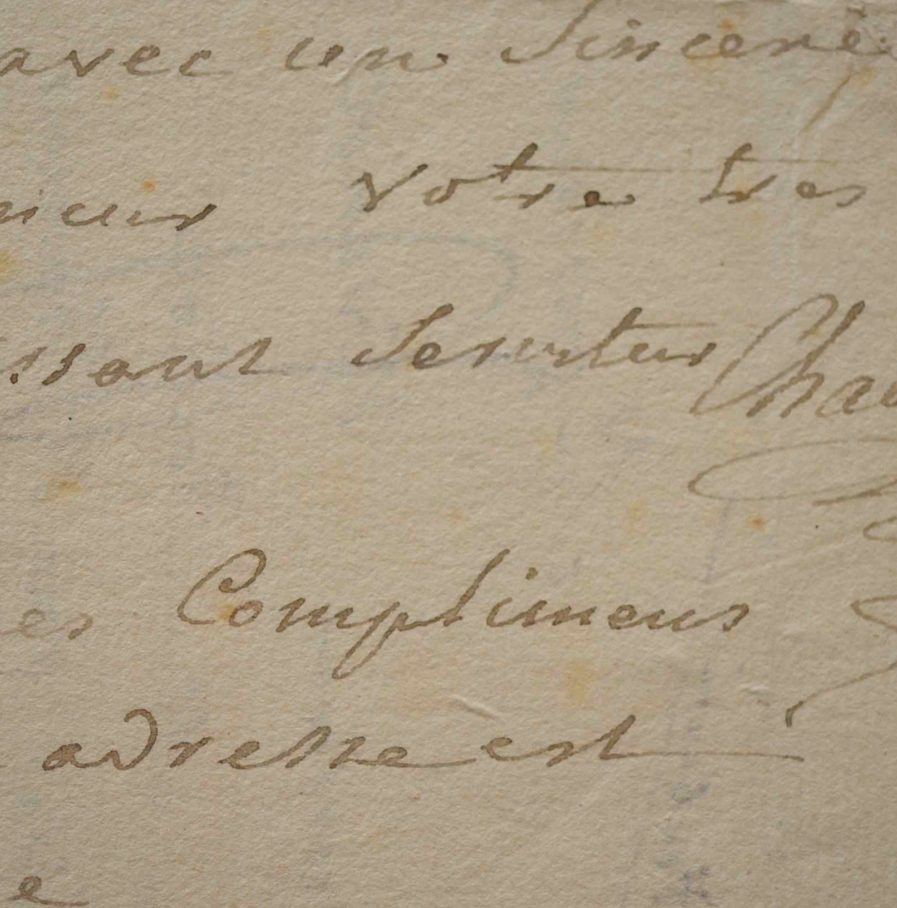 avec un Sincere
sieur votre tres
issant Serviteur Chau
es Complimens
adresse est
e